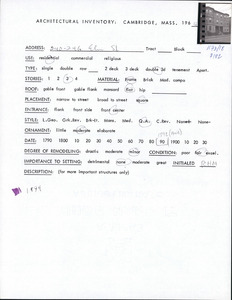 ARCHITECTURAL INVENTORY: CAMBRIDGE, MASS, 196
ADDRESS: St Tract Block
USE: residential commercial religious
TYPE: single double row 2 deck 3 deck double 3d tenement Apart.
STORIES: 1 2 3 4 MATERIAL: Frame Brick Mod. compo
ROOF: gable front gable flank mansard flat hip
PLACEMENT: narrow to street broad to street square
ENTRANCE: flank front side front center
STYLE: L.Geo. Grk.Rev. Brkt. Mans. Med. Q.A. C.Rev. Numeth None
ORNAMENT: little moderate elaborate
DATE: 1790 1800 10 20 30 40 50 60 70 80 90 1900 10 20 30
DEGREE OF REMODELING: drastic moderate minor CONDITION: poor fair excel.
IMPORTANCE TO SETTING: detrimental none moderate great INITIALED
DESCRIPTION: (for more important structures only)